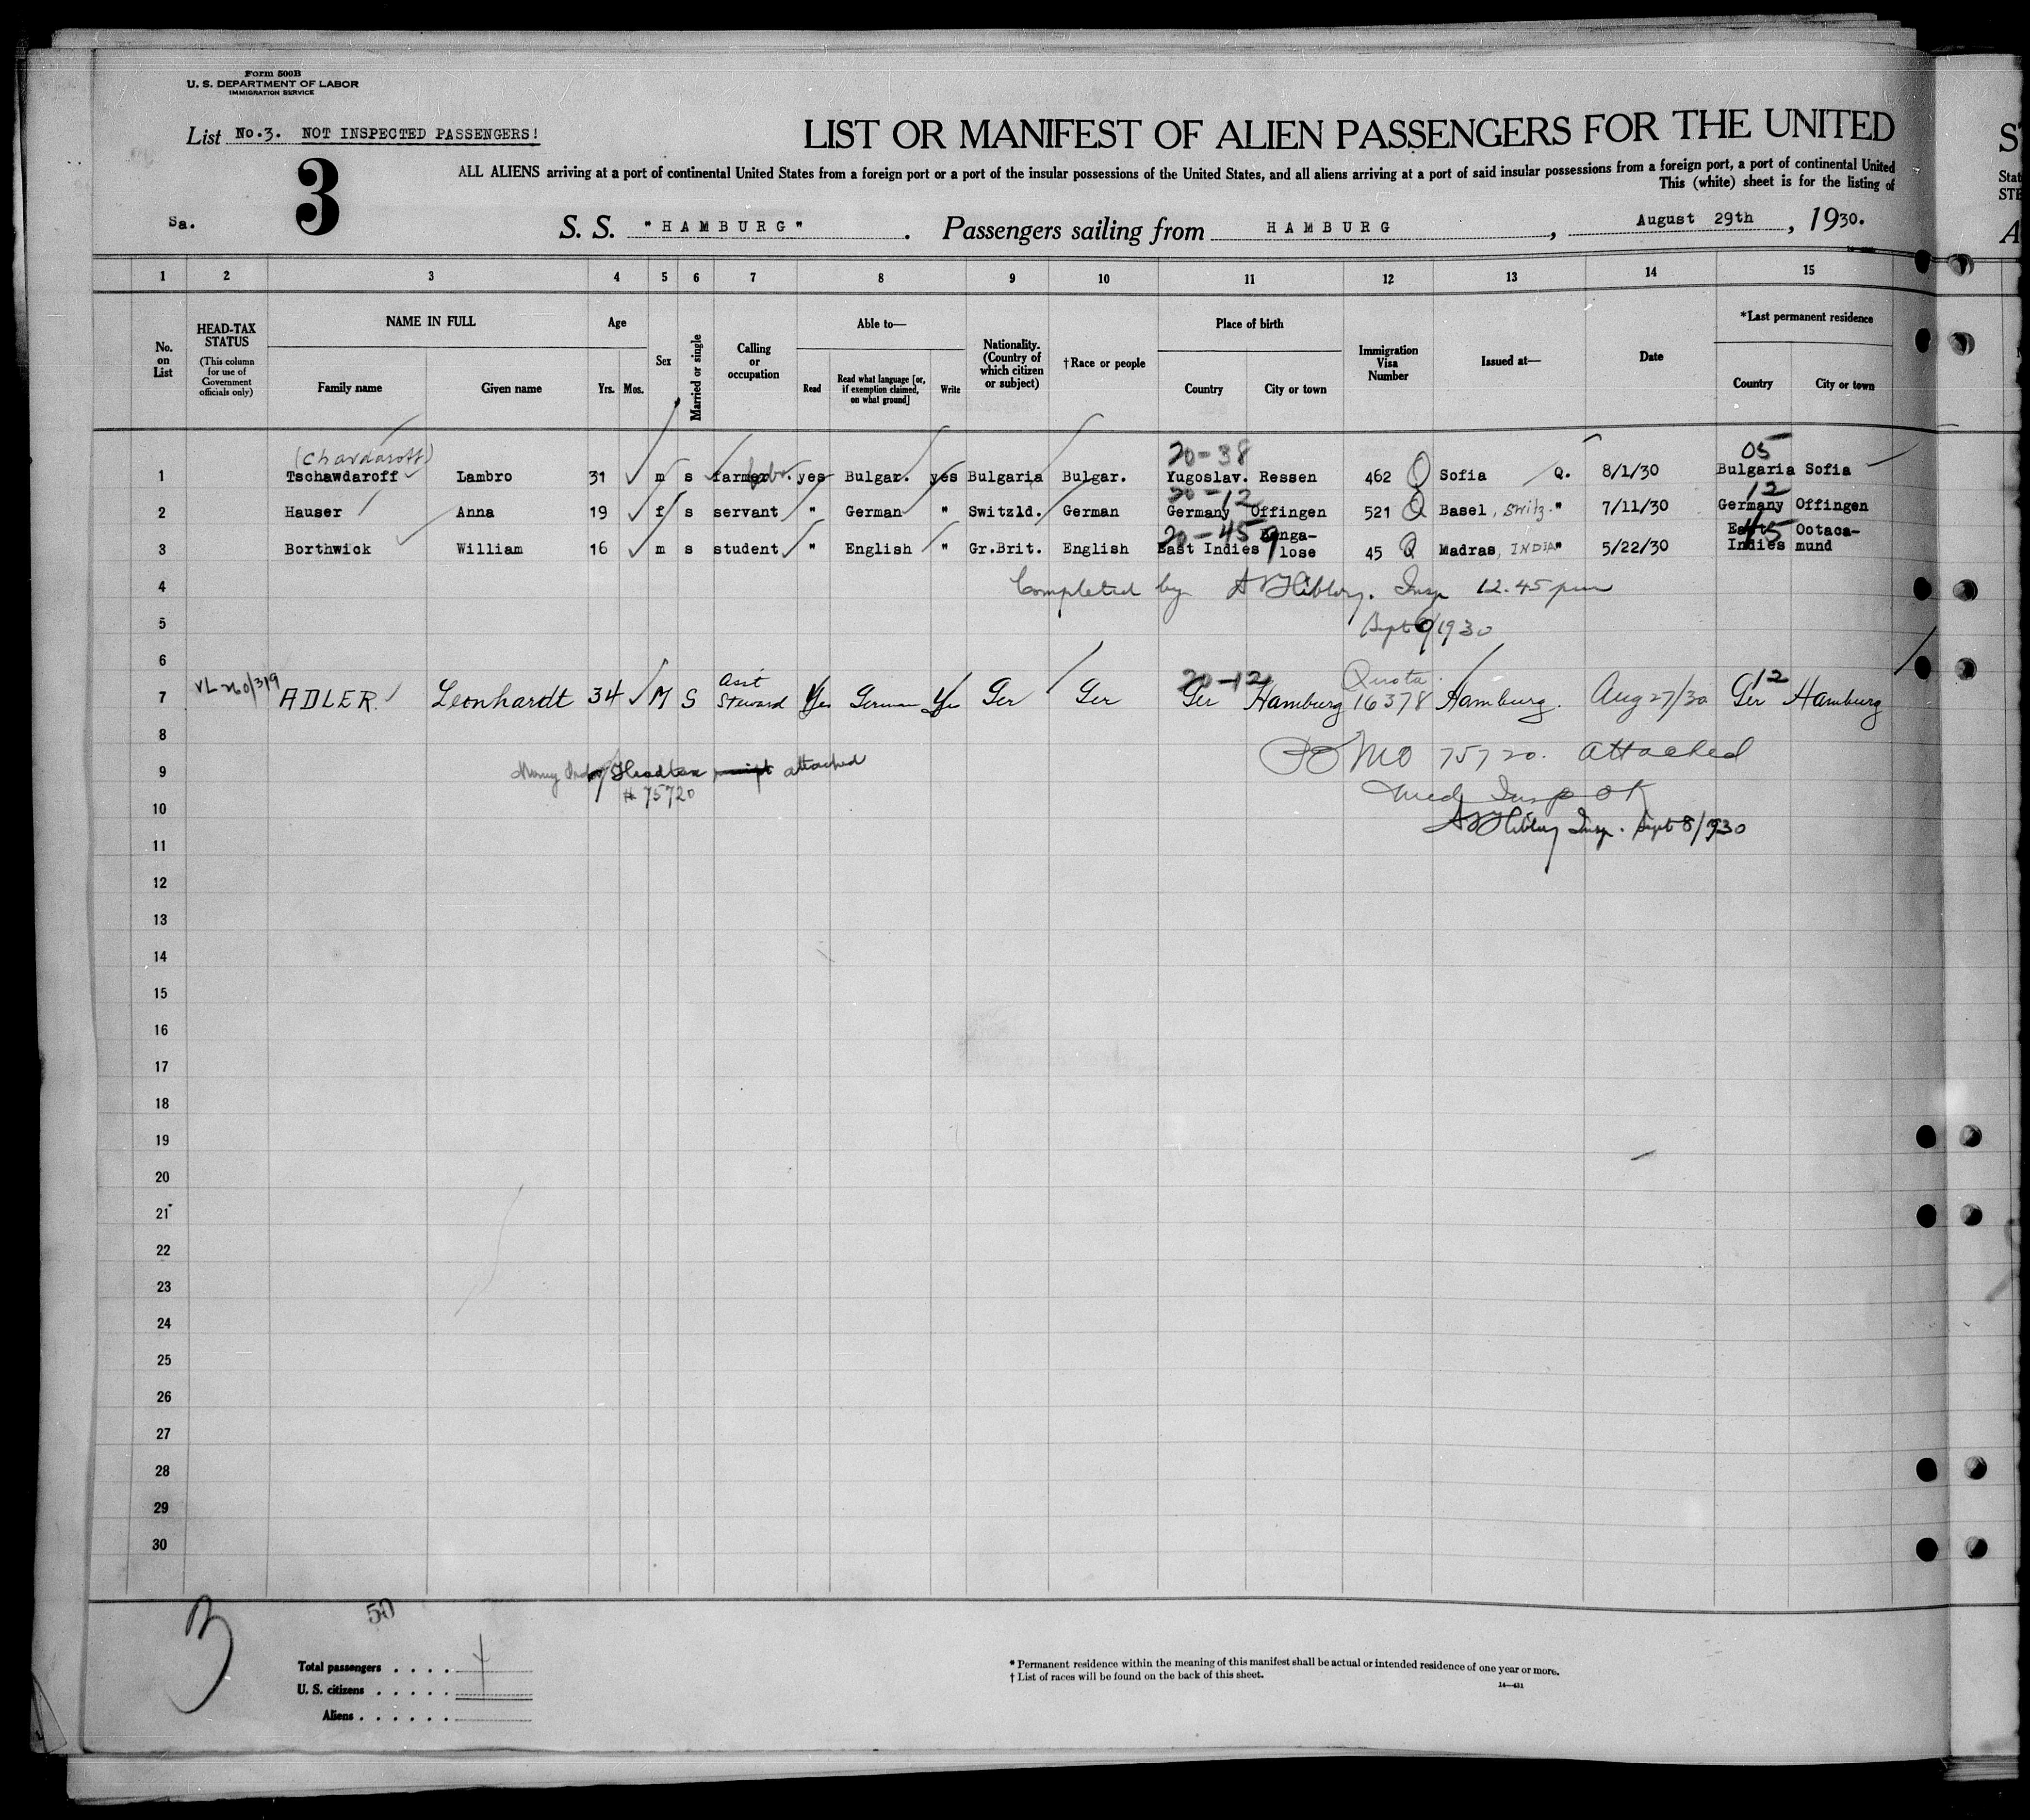 Form 500B
U. S. DEPARTMENT OF LABOR
IMMIGRATION SERVICE
List No.3. NOT INSPECTED PASSENGERS!
3
LIST OR MANIFEST OF ALIEN PASSENGERS FOR THE UNITED
ALL ALIENS arriving at a port of continental United States from a foreign port or a port of the insular possessions of the United States, and all aliens arriving at a port of said insular possessions from a foreign port, a port of continental United
This (white) sheet is for the listing of
Sa.
S. S. "HAMBURG". Passengers sailing from HAMBURG, August 29th, 1930.
1 2 3 4 5 6 7 8 9 10 11 12 13 14 15
No. on List
HEAD-TAX STATUS (This column for use of Government officials only)
NAME IN FULL
Family name Given name
Age
Yrs. Mos.
Sex
Married or single
Calling or occupation
Able to—
Read Read what language [or, if exemption claimed, on what ground] Write
Nationality. (Country of which citizen or subject)
†Race or people
Place of birth
Country City or town
Immigration Visa Number
Issued at—
Date
*Last permanent residence
Country City or town
(Chardaroff) 20-38 05
1 Tschawdaroff Lambro 31 m s farmer yes Bulgar. yes Bulgaria Bulgar. Yugoslav. Ressen 462 Q Sofia Q. 8/1/30 Bulgaria Sofia
20-12 12
2 Hauser Anna 19 f s servant " German " Switzld. German Germany Offingen 521 Q Basel, Switz. " 7/11/30 Germany Offingen
20-45 45
3 Borthwick William 16 m s student " English " Gr.Brit. English East Indies Banga-lose 45 Q Madras, INDIA " 5/22/30 East Indies Ootaca-mund
4 Completed by Insp 12.45 pm
5 Sept 1930
6
20-12 Quota 12
7 VL 260/319 ADLER Leonhardt 34 M S Asst Steward Yes German Ye Ger Ger Ger Hamburg 16378 Hamburg. Aug 27/30 Ger Hamburg
8 PO MO 75720. attached
9 Headtax receipt attached
# 75720
Med Insp OK
10 Insp. Sept 8/1930
11
12
13
14
15
16
17
18
19
20
21
22
23
24
25
26
27
28
29
30
3
50
Total passengers
U. S. citizens
Aliens
* Permanent residence within the meaning of this manifest shall be actual or intended residence of one year or more.
† List of races will be found on the back of this sheet.
14—431